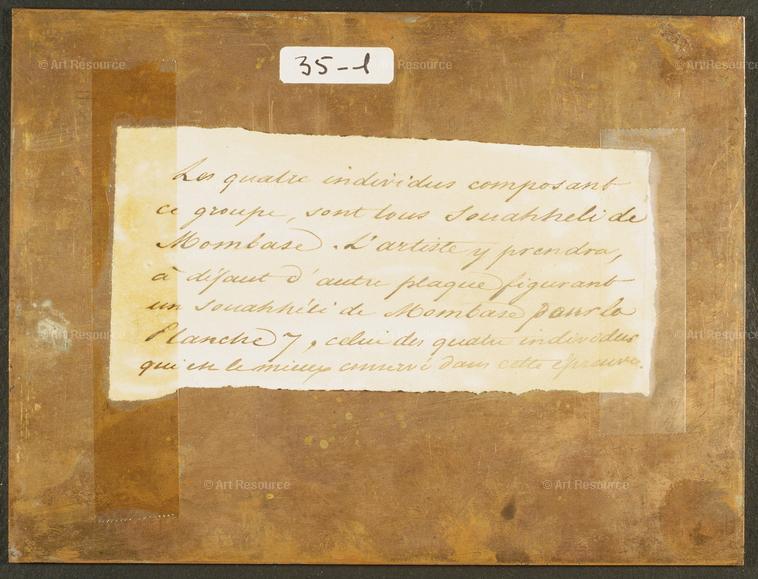 35-1
Les quatre individus composant
ce groupe, sont tous Souahhéli de
Mombase. L'artiste y prendra,
à défaut d'autre plaque figurant
un Souahhéli de Mombase pour la
Planche 7, celui des quatre individus
qui est le mieux conservé dans cette épreuve.
© Art Resource
© Art Resource
© Art Resource
© Art Resource
© Art Resource
© Art Resource
© Art Resource
© Art Resource